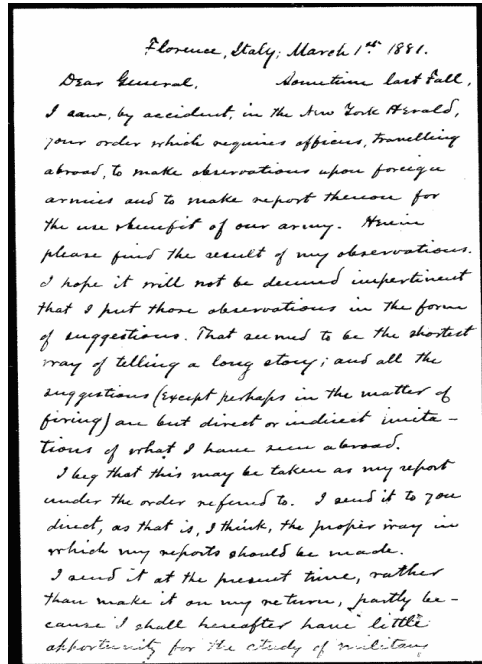 Florence, Italy; March 1st 1881.
Dear General, Sometime last Fall,
I saw, by accident, in the New York Herald,
your order which requires officers, travelling
abroad, to make observations upon foreign
armies and to make report thereon for
the use & benefit of our army. Herein
please find the result of my observations.
I hope it will not be deemed impertinent
that I put those observations in the form
of suggestions. That seemed to be the shortest
way of telling a long story; and all the
suggestions (except perhaps in the matter of
firing) are but direct or indirect imita-
tions of what I have seen abroad.
I beg that this may be taken as my report
under the order referred to. I send it to you
direct, as that is, I think, the proper way in
which my reports should be made.
I send it at the present time, rather
than make it on my return, partly be-
cause I shall hereafter have little
opportunity for the study of military